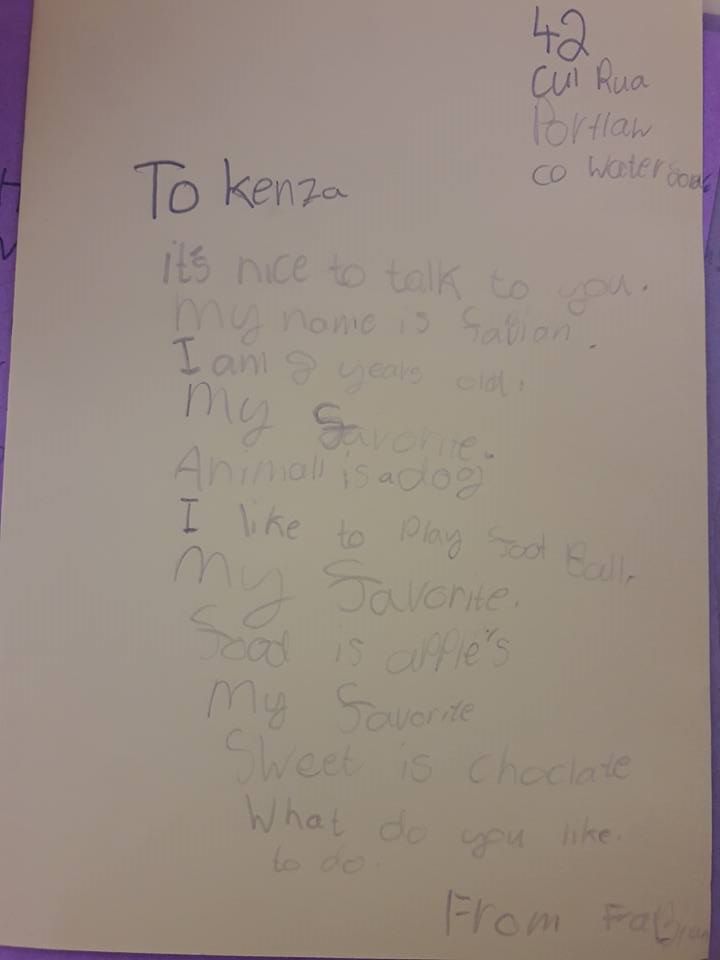 42
Cul Rua
Portlaw
co Waterford
To kenza
it's nice to talk to you.
My name is fabian.
I am 8 years old.
My favorite.
Animall is a dog
I like to Play foot Ball.
My favorite.
food is apple's
My favorite
Sweet is choclate
What do you like.
to do.
From Fabian